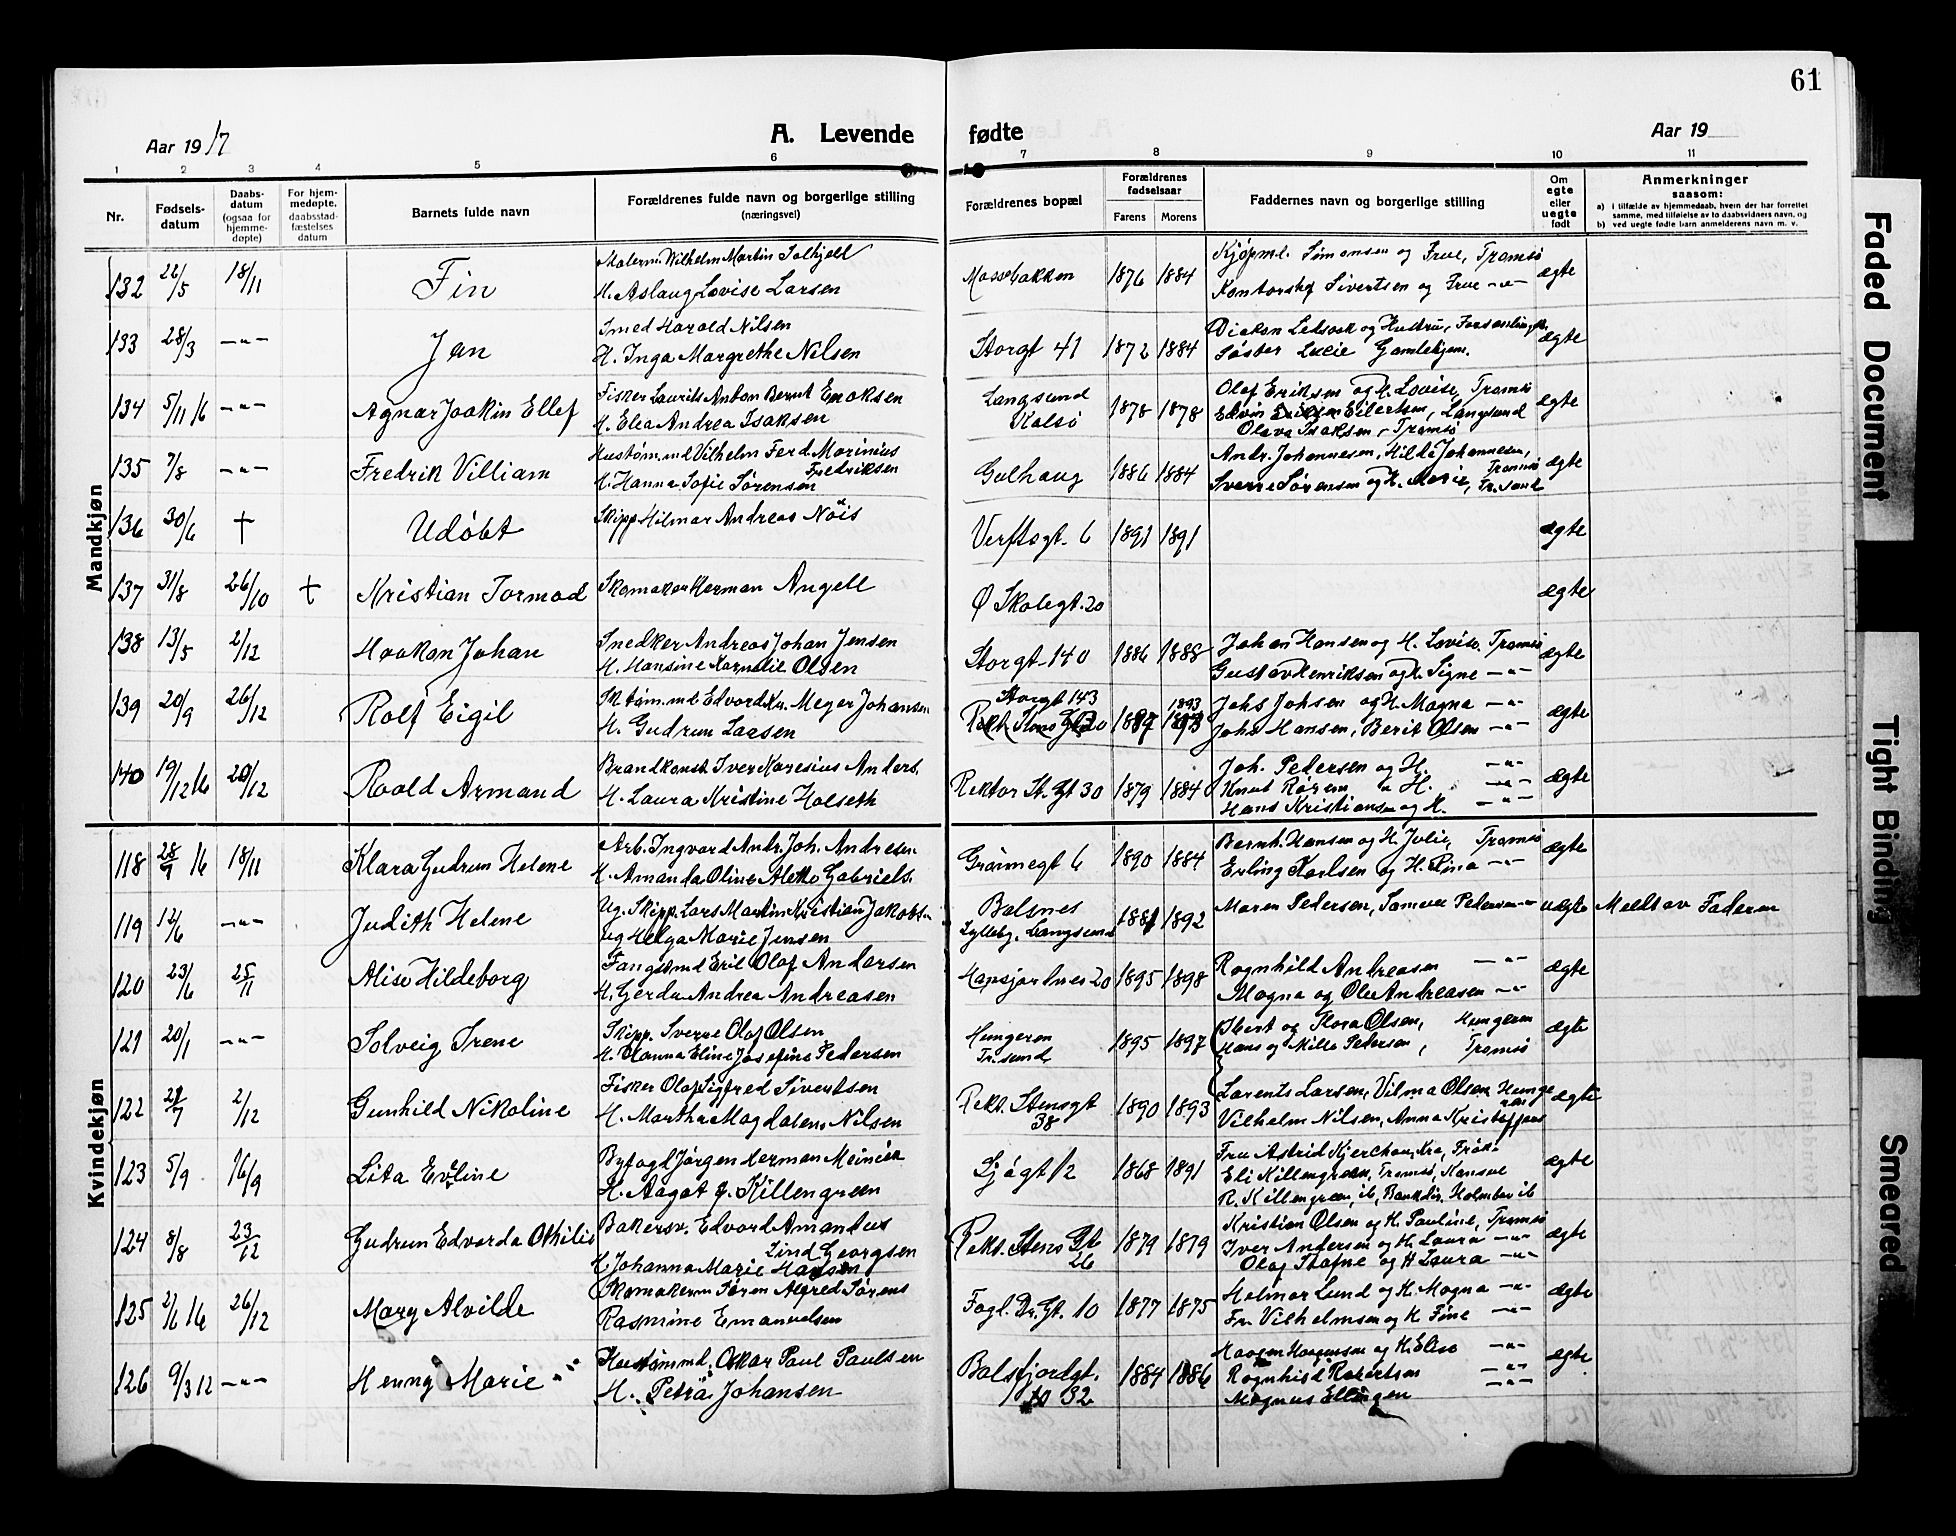 61
Aar 1917
A. Levende fødte
Aar 19
1 2 3 4 5 6 7 8 9 10 11
Nr.
Fødsels-
datum
Daabs-
datum
(ogsaa for
hjemme-
døpte)
For hjem-
medøpte.
daabsstad-
fæstelses
datum
Barnets fulde navn
Forældrenes fulde navn og borgerlige stilling
(næringsvei)
Forældrenes bopæl
Forældrenes
fødselsaar
Farens Morens
Faddernes navn og borgerlige stilling
Om
egte
eller
uegte
født
Anmerkninger
saasom:
a) i tilfælde av hjemmedaab, hvem der har forrettet
samme, med tilføielse av to daabsvidners navn, og
b) ved uegte fødte barn anmelderens navn m. v.
Mandkjøn
132 22/5 18/11 Fin
Malerm. Wilhelm Martin Solhjell
H. Aslaug Lovise Larsen
Mossebakken 1876 1884
Kjøpm. Simonsen og Frue, Tromsø
Kontorchef Sivertsen og Frue -"-
ægte
133 28/3 -"- Jan
Smed Harald Nilsen
H. Inga Margrethe Nilsen
Storgt 41 1872 1884
Diakon og Hustru,
Søster Lucie Gamlehjem.
ægte
134 5/11 16 -"- Agnar Joakin Ellef
Fisker Laurits Anton Bernt Enoksen
H. Elea Andrea Isaksen
Langsund
Kalsø
1878 1878
Olaf Eriksen og H. Lovise, Tromsø
Edvin Eilertsen, Langsund
Olava Isaksen, Tromsø
ægte
135 7/8 -"- Fredrik Villiam
Hustømmd Vilhelm Ferd. Marinius
Fredriksen
H. Hanna Sofie Sørensen
Gulhaug 1886 1884
Andr. Johannesen, Hilda Johannesen,
Tromsø
Sverre Sørensen og H. Marie, Tr.sund
ægte
136 30/6 † Udøbt
Skipp Hilmar Andreas Nöis
Verftsgt. 6 1891 1891
ægte
137 31/8 26/10 † Kristian Tormod
Skomaker Herman Angell
Ø Skolegt. 20
ægte
138 13/5 2/12 Haakon Johan
Snedker Andreas Johan Jensen
H. Hansine Kornelie Olsen
Storgt 140 1886 1888
Johan Hansen og H. Lovise, Tromsø
Gustav Henriksen og H. Signe -"-
ægte
139 20/9 26/12 Rolf Eigil
Sktømmd Edvard Kr. Meyer Johansen
H. Gudrun Larsen
Storgt 143
Rekt. Stens Gt 30
1887 1893
Johs Johsen og H. Magna -"-
Johs Hansen, Berit Olsen -"-
ægte
140 19/12 16 20/12 Roald Armand
Brandkonst. Iver Karesius Anders.
H. Laura Kristine Holseth
Rektor St. Gt 30 1879 1884
Joh. Pedersen og H. -"-
Knut " H. -"-
Hans Kristiansen og H. -"-
ægte
Kvindekjøn
118 28/7 16 18/11 Klara Gudrun Helene
Arb. Ingvard Andr. Joh. Andresen
H. Amanda Oline Aletta Gabriels.
Grönnegt 6 1890 1884
Bernh. Hansen og H. Julie, Tromsø
Erling Karlsen og H. Rina -"-
ægte
119 12/6 -"- Judith Helene
Ug. Skipp. Lars Martin Kristian Jakobsen
Ug Helga Marie Jensen
Balsnes
Lytteby, Langsund
1881 1892
Maren Pedersen, Samuel Pedersen -"-
uægte Meldt av Faderen
120 23/6 25/11 Alise Hildeborg
Fangstmd Eril Olaf Andersen
H. Gerda Andrea Andreasen
Hansjordnes 20 1895 1898
Ragnhild Andreasen -"-
Magna og Olea Andreasen -"-
ægte
121 20/1 -"- Solveig Irene
Skipp. Sverre Olaf Olsen
H. Hanna Eline Josefine Pedersen
Hungeren
Tr.sund
1895 1897
og Flora Olsen, Hungeren
Hans og Milla Pedersen, Tromsø
ægte
122 27/7 2/12 Gunhild Nikoline
Fisker Olaf Sigfred Sivertsen
H. Martha Magdalena Nilsen
Rekt. Stensgt
38
1890 1893
Lorents Larsen, Vilma Olsen, Hunge
ren
Vilhelm Nilsen, Anna Kristoffersen
ægte
123 5/9 16/9 Lita Eveline
Byfogd Jørgen Herman Meinich
H. Aagot f. Killengreen
Sjøgt 12 1868 1891
Fru Astrid Kjerschow, Kra, Frøken
Eli Killengreen, Tromsø, Konsul
R. Killengreen, ib, Bankdir. Holmboe ib
ægte
124 8/8 23/12 Gudrun Edvarda Othilie
Bakersv. Edvard Amandus
Lind Georgsen
H. Johanna Marie Hansen
Rekt. Stens Gt
26
1879 1879
Kristian Olsen og H. Pauline, Tromsø
Iver Andersen og H. Laura -"-
Olaf Stafne og H Laura -"-
ægte
125 2/6 16 26/12 Mary Alvilde
Skomakerm Søren Alfred Sørens
Rasmine Emanuelsen
Fogd. Dr. Gt. 10 1877 1875
Helmar Lund og H. Magna -"-
Fr. Vilhelmsen og H Fine -"-
ægte
126 9/3 12 -"- Henny Marie
Hustømmd. Oskar Paul Paulsen
H. Petra Johansen
Balsfjordgt.
32
1884 1886
Haagen Haagensen og H. Elise -"-
Ragnhild Robertsen -"-
Magnus Ellingsen -"-
ægte
Faded Document
Tight Binding
Smeared